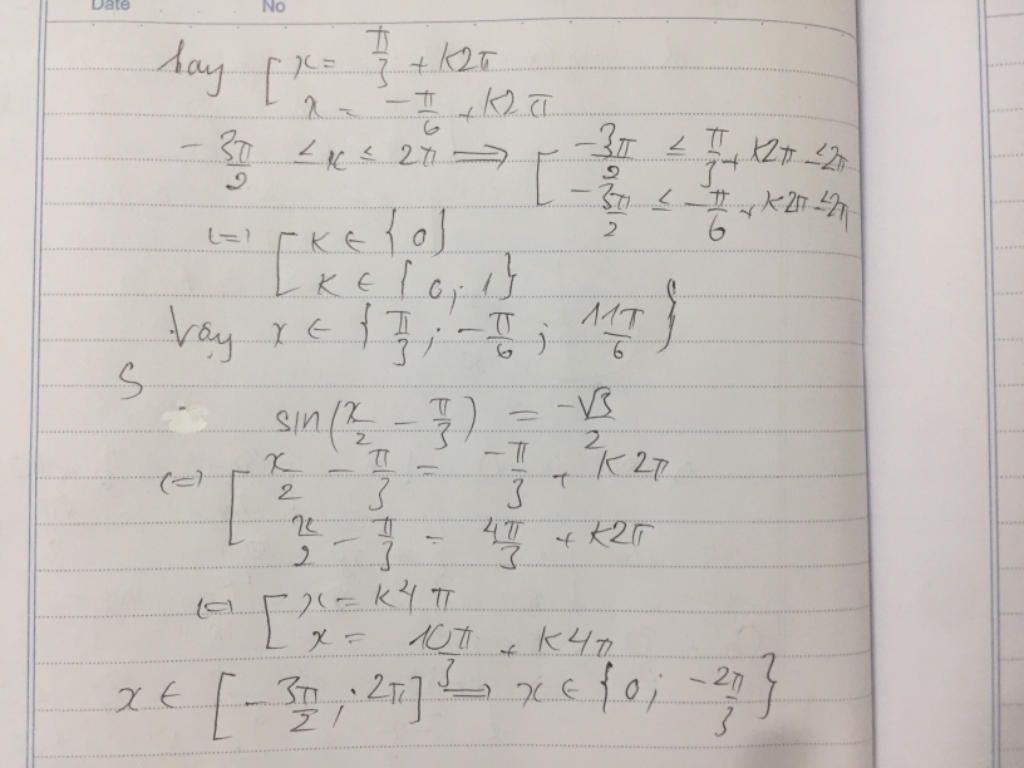 Date No
hay [ x = π/3 + k2π
x = -π/6 + k2π
-3π/2 ≤ x ≤ 2π => [ -3π/2 ≤ π/3 + k2π ≤ 2π
-3π/2 ≤ -π/6 + k2π ≤ 2π
(=) [ k ∈ {0}
k ∈ {0; 1}
Vậy x ∈ {π/3; -π/6; 11π/6}
S
sin(x/2 - π/3) = -√3/2
(=) [ x/2 - π/3 = -π/3 + k2π
x/2 - π/3 = 4π/3 + k2π
(=) [ x = k4π
x = 10π/3 + k4π
x ∈ [-3π/2; 2π] => x ∈ {0; -2π/3}